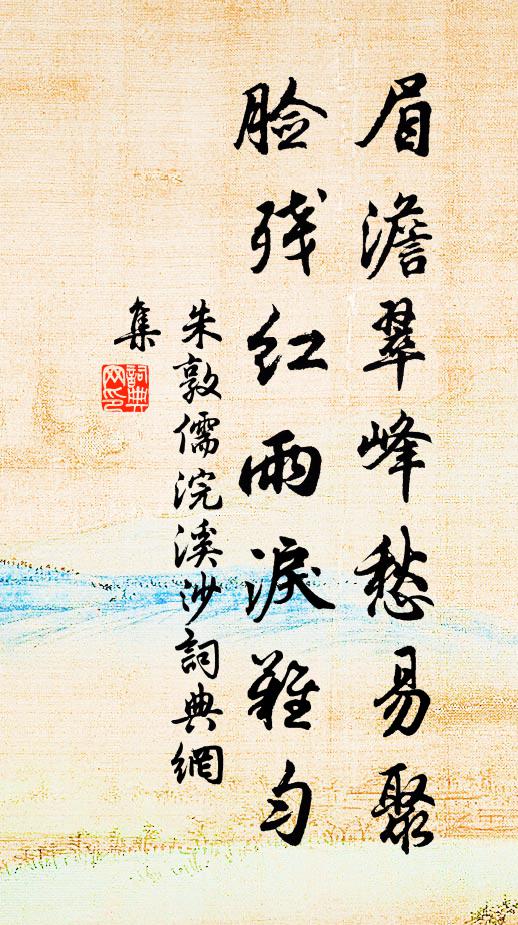 眉澹翠峰愁易聚
脸残红雨淚難匀
朱敦儒浣溪沙詞典網
集
詞典
网印